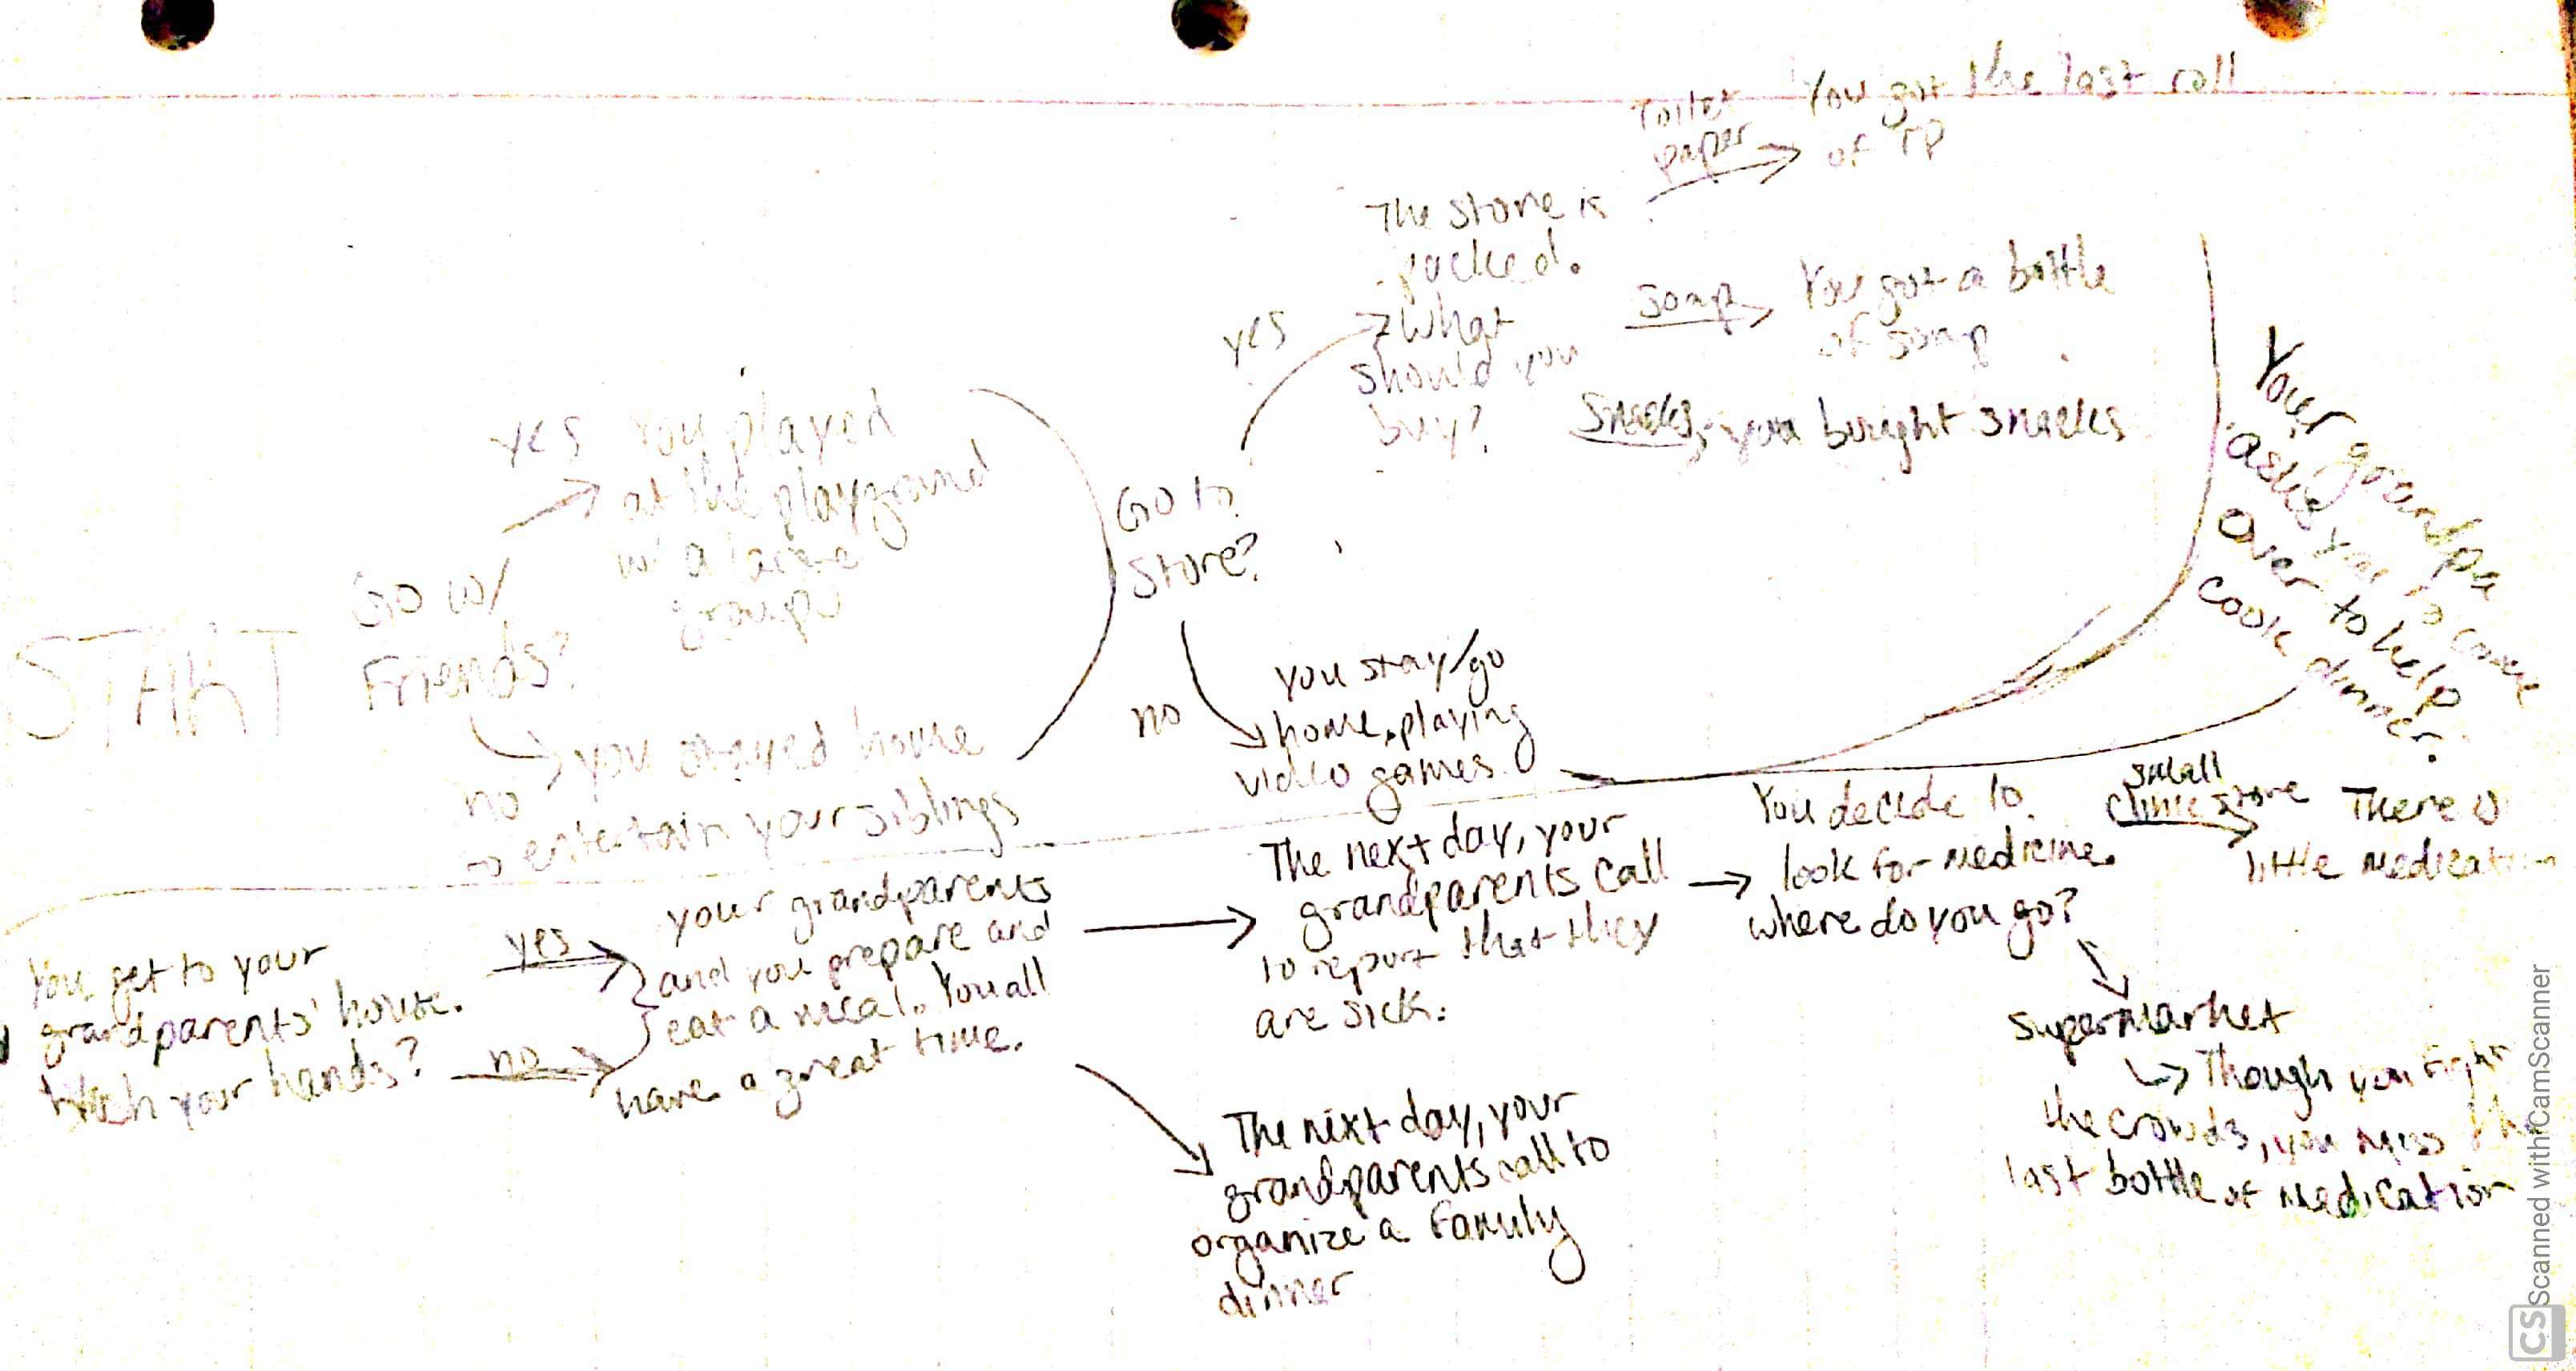 START
Go w/
Friends?
yes
You played
at the playground
w/ a large
group
no
you stayed home
→ entertain your siblings
Go to
Store?
yes
The store is
packed.
What
should you
buy?
Toilet
paper
You got the last roll
of TP
soap
You got a bottle
of soap
Snacks
you bought snacks
no
you stay/go
home, playing
video games.
Your grandpa
asks you to come
over to help
cook dinner.
You get to your
grandparents' house.
your hands?
yes
no
your grandparents
and you prepare and
eat a meal. You all
have a great time.
The next day, your
grandparents call
to report that they
are sick.
The next day, your
grandparents call to
organize a family
dinner
You decide to
look for medicine.
where do you go?
small
clinic store
There is
little
supermarket
Though you fight
the crowds, you miss the
last bottle of medication
Scanned with CamScanner
CS